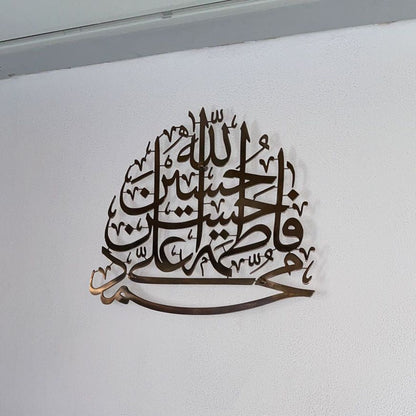 الله
حسين
حسن
فاطمة علي
محمد